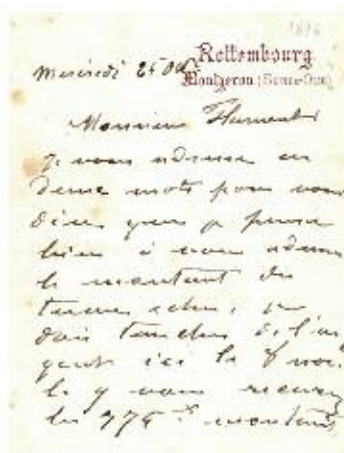 Rottembourg
Montgeron (Seine-Oise)
Mercredi 25 Oct
Monsieur
Je vous adresse ces
deux mots pour vous
dire que je pense
bien à vous adresser
le montant du
terme échu, je
dois toucher de l'ar
gent ici le 8 nov.
le 9 vous recevrez
les 775 montant